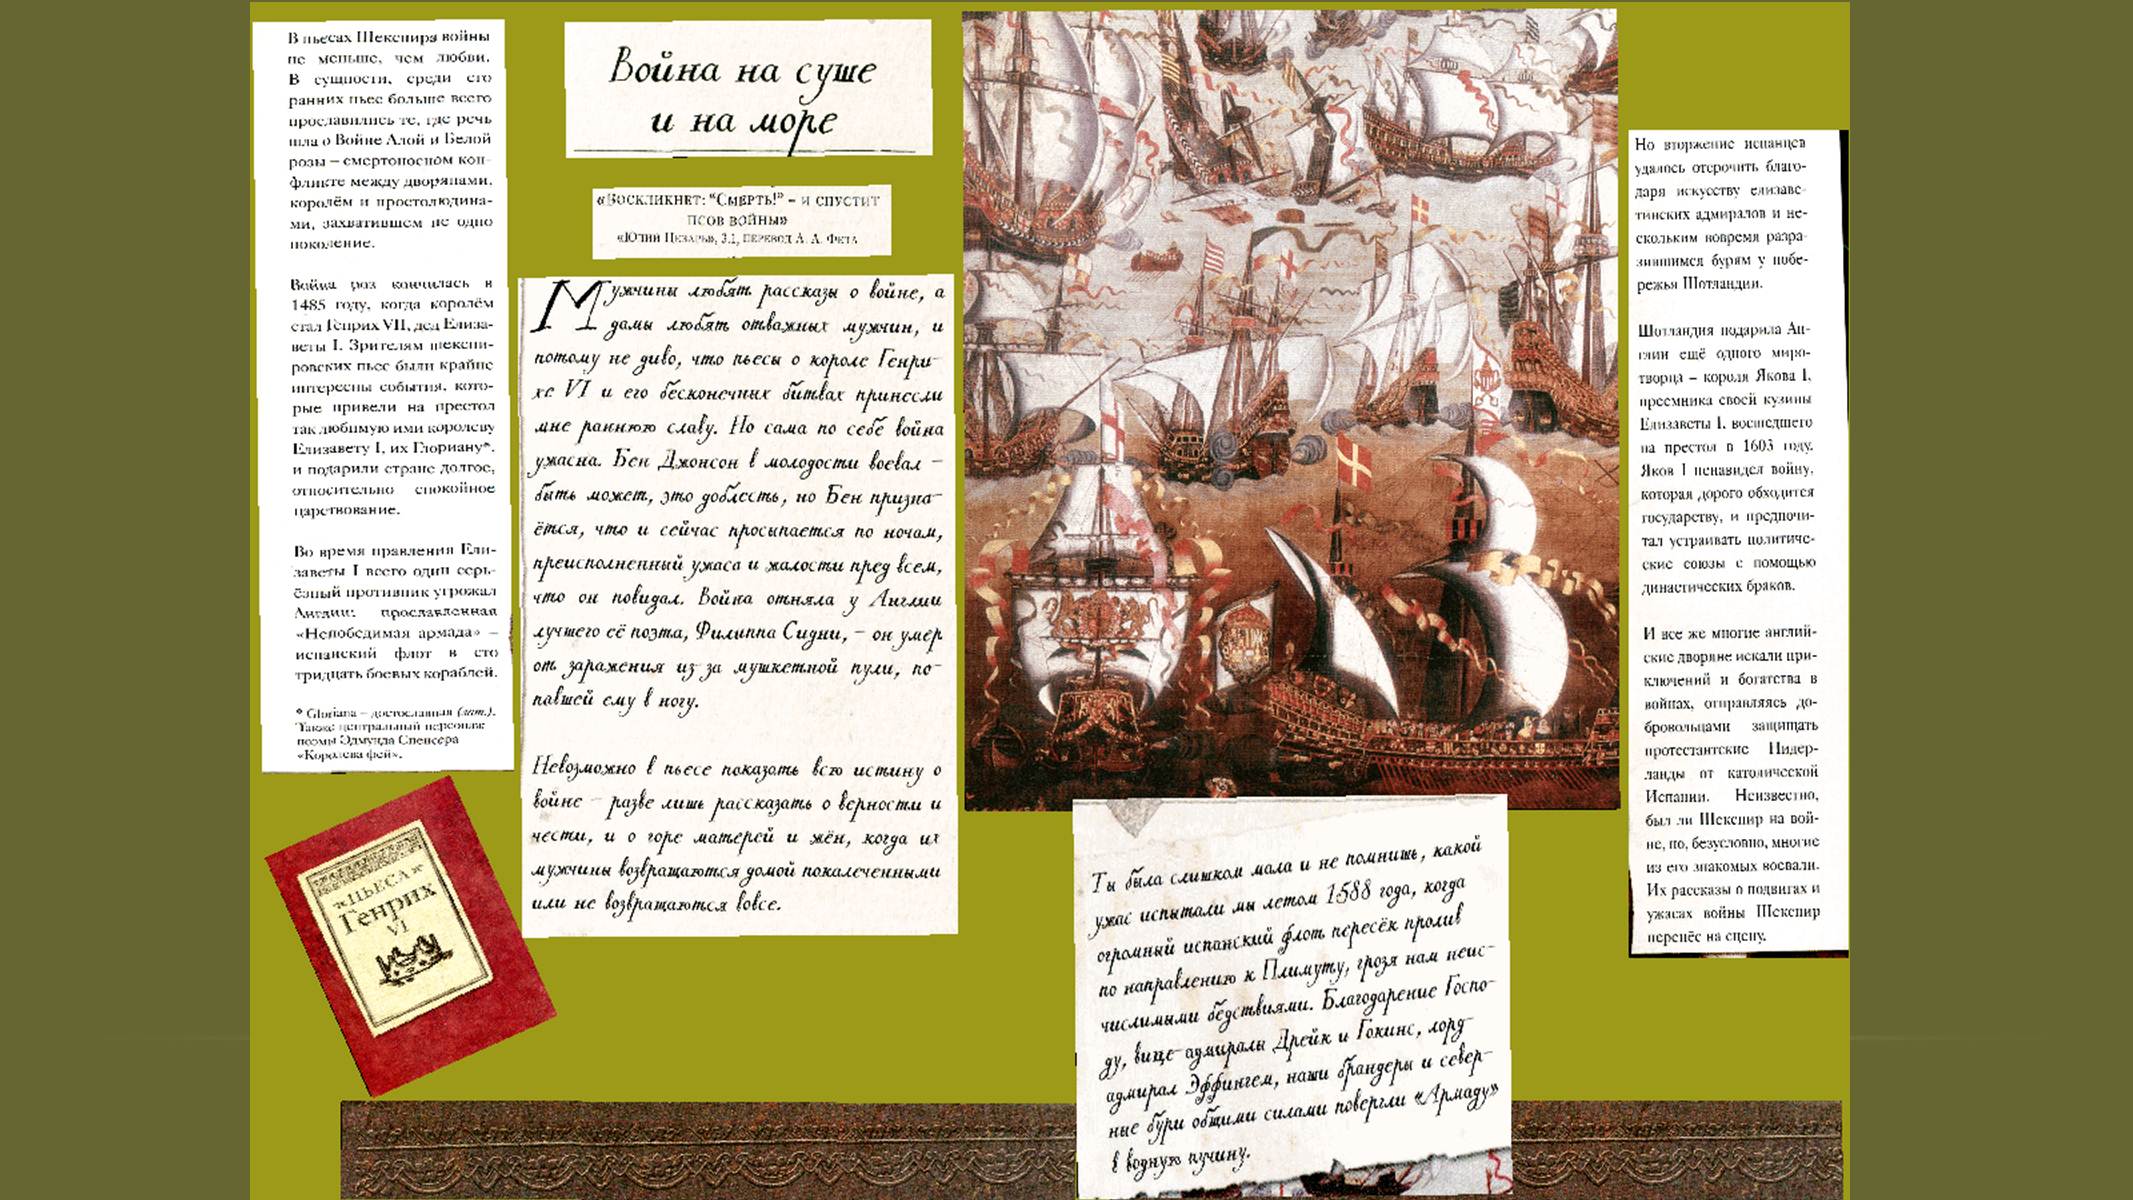 В пьесах Шекспира войны
не меньше, чем любви.
В сущности, среди его
ранних пьес больше всего
прославились те, где речь
шла о Войне Алой и Белой
розы – смертоносном кон-
фликте между дворянами,
королём и простолюдина-
ми, захватившем не одно
поколение.
Война роз кончилась в
1485 году, когда королём
стал Генрих VII, дед Елиза-
веты I. Зрителям шекспи-
ровских пьес были крайне
интересны события, кото-
рые привели на престол
так любимую ими королеву
Елизавету I, их Глориану*,
и подарили стране долгое,
относительно спокойное
царствование.
Во время правления Ели-
заветы I всего один серь-
ёзный противник угрожал
Англии: прославленная
«Непобедимая армада» –
испанский флот в сто
тридцать боевых кораблей.
* Gloriana – достославная (лат.).
Также центральный персонаж
поэмы Эдмунда Спенсера
«Королева фей».
«ПЬЕСА»
Генрих
VI
Война на суше
и на море
«Воскликнет: "Смерть!" – и спустит
псов войны»
«Юлий Цезарь», 3.1, перевод А. А. Фета
Мужчины любят рассказы о войне, а
дамы любят отважных мужчин, и
потому не диво, что пьесы о короле Генри-
хе VI и его бесконечных битвах принесли
мне раннюю славу. Но сама по себе война
ужасна. Бен Джонсон в молодости воевал –
быть может, это доблесть, но Бен призна-
ётся, что и сейчас просыпается по ночам,
преисполненный ужаса и жалости пред всем,
что он повидал. Война отняла у Англии
лучшего её поэта, Филиппа Сидни, – он умер
от заражения из-за мушкетной пули, по-
павшей ему в ногу.
Невозможно в пьесе показать всю истину о
войне – разве лишь рассказать о верности и
чести, и о горе матерей и жён, когда их
мужчины возвращаются домой покалеченными
или не возвращаются вовсе.
Ты была слишком мала и не помнишь, какой
ужас испытали мы летом 1588 года, когда
огромный испанский флот пересёк пролив
по направлению к Плимуту, грозя нам неис-
числимыми бедствиями. Благодарение Госпо-
ду, вице-адмиралы Дрейк и Гокинс, лорд-
адмирал Эффингем, наши брандеры и север-
ные бури общими силами повергли «Армаду»
в водную пучину.
Но вторжение испанцев
удалось отсрочить благо-
даря искусству елизаве-
тинских адмиралов и не-
скольким вовремя разра-
зившимся бурям у побе-
режья Шотландии.
Шотландия подарила Ан-
глии ещё одного миро-
творца – короля Якова I,
преемника своей кузины
Елизаветы I, восшедшего
на престол в 1603 году.
Яков I ненавидел войну,
которая дорого обходится
государству, и предпочи-
тал устраивать политиче-
ские союзы с помощью
династических браков.
И все же многие англий-
ские дворяне искали при-
ключений и богатства в
войнах, отправляясь до-
бровольцами защищать
протестантские Нидер-
ланды от католической
Испании. Неизвестно,
был ли Шекспир на вой-
не, но, безусловно, многие
из его знакомых воевали.
Их рассказы о подвигах и
ужасах войны Шекспир
перенёс на сцену.